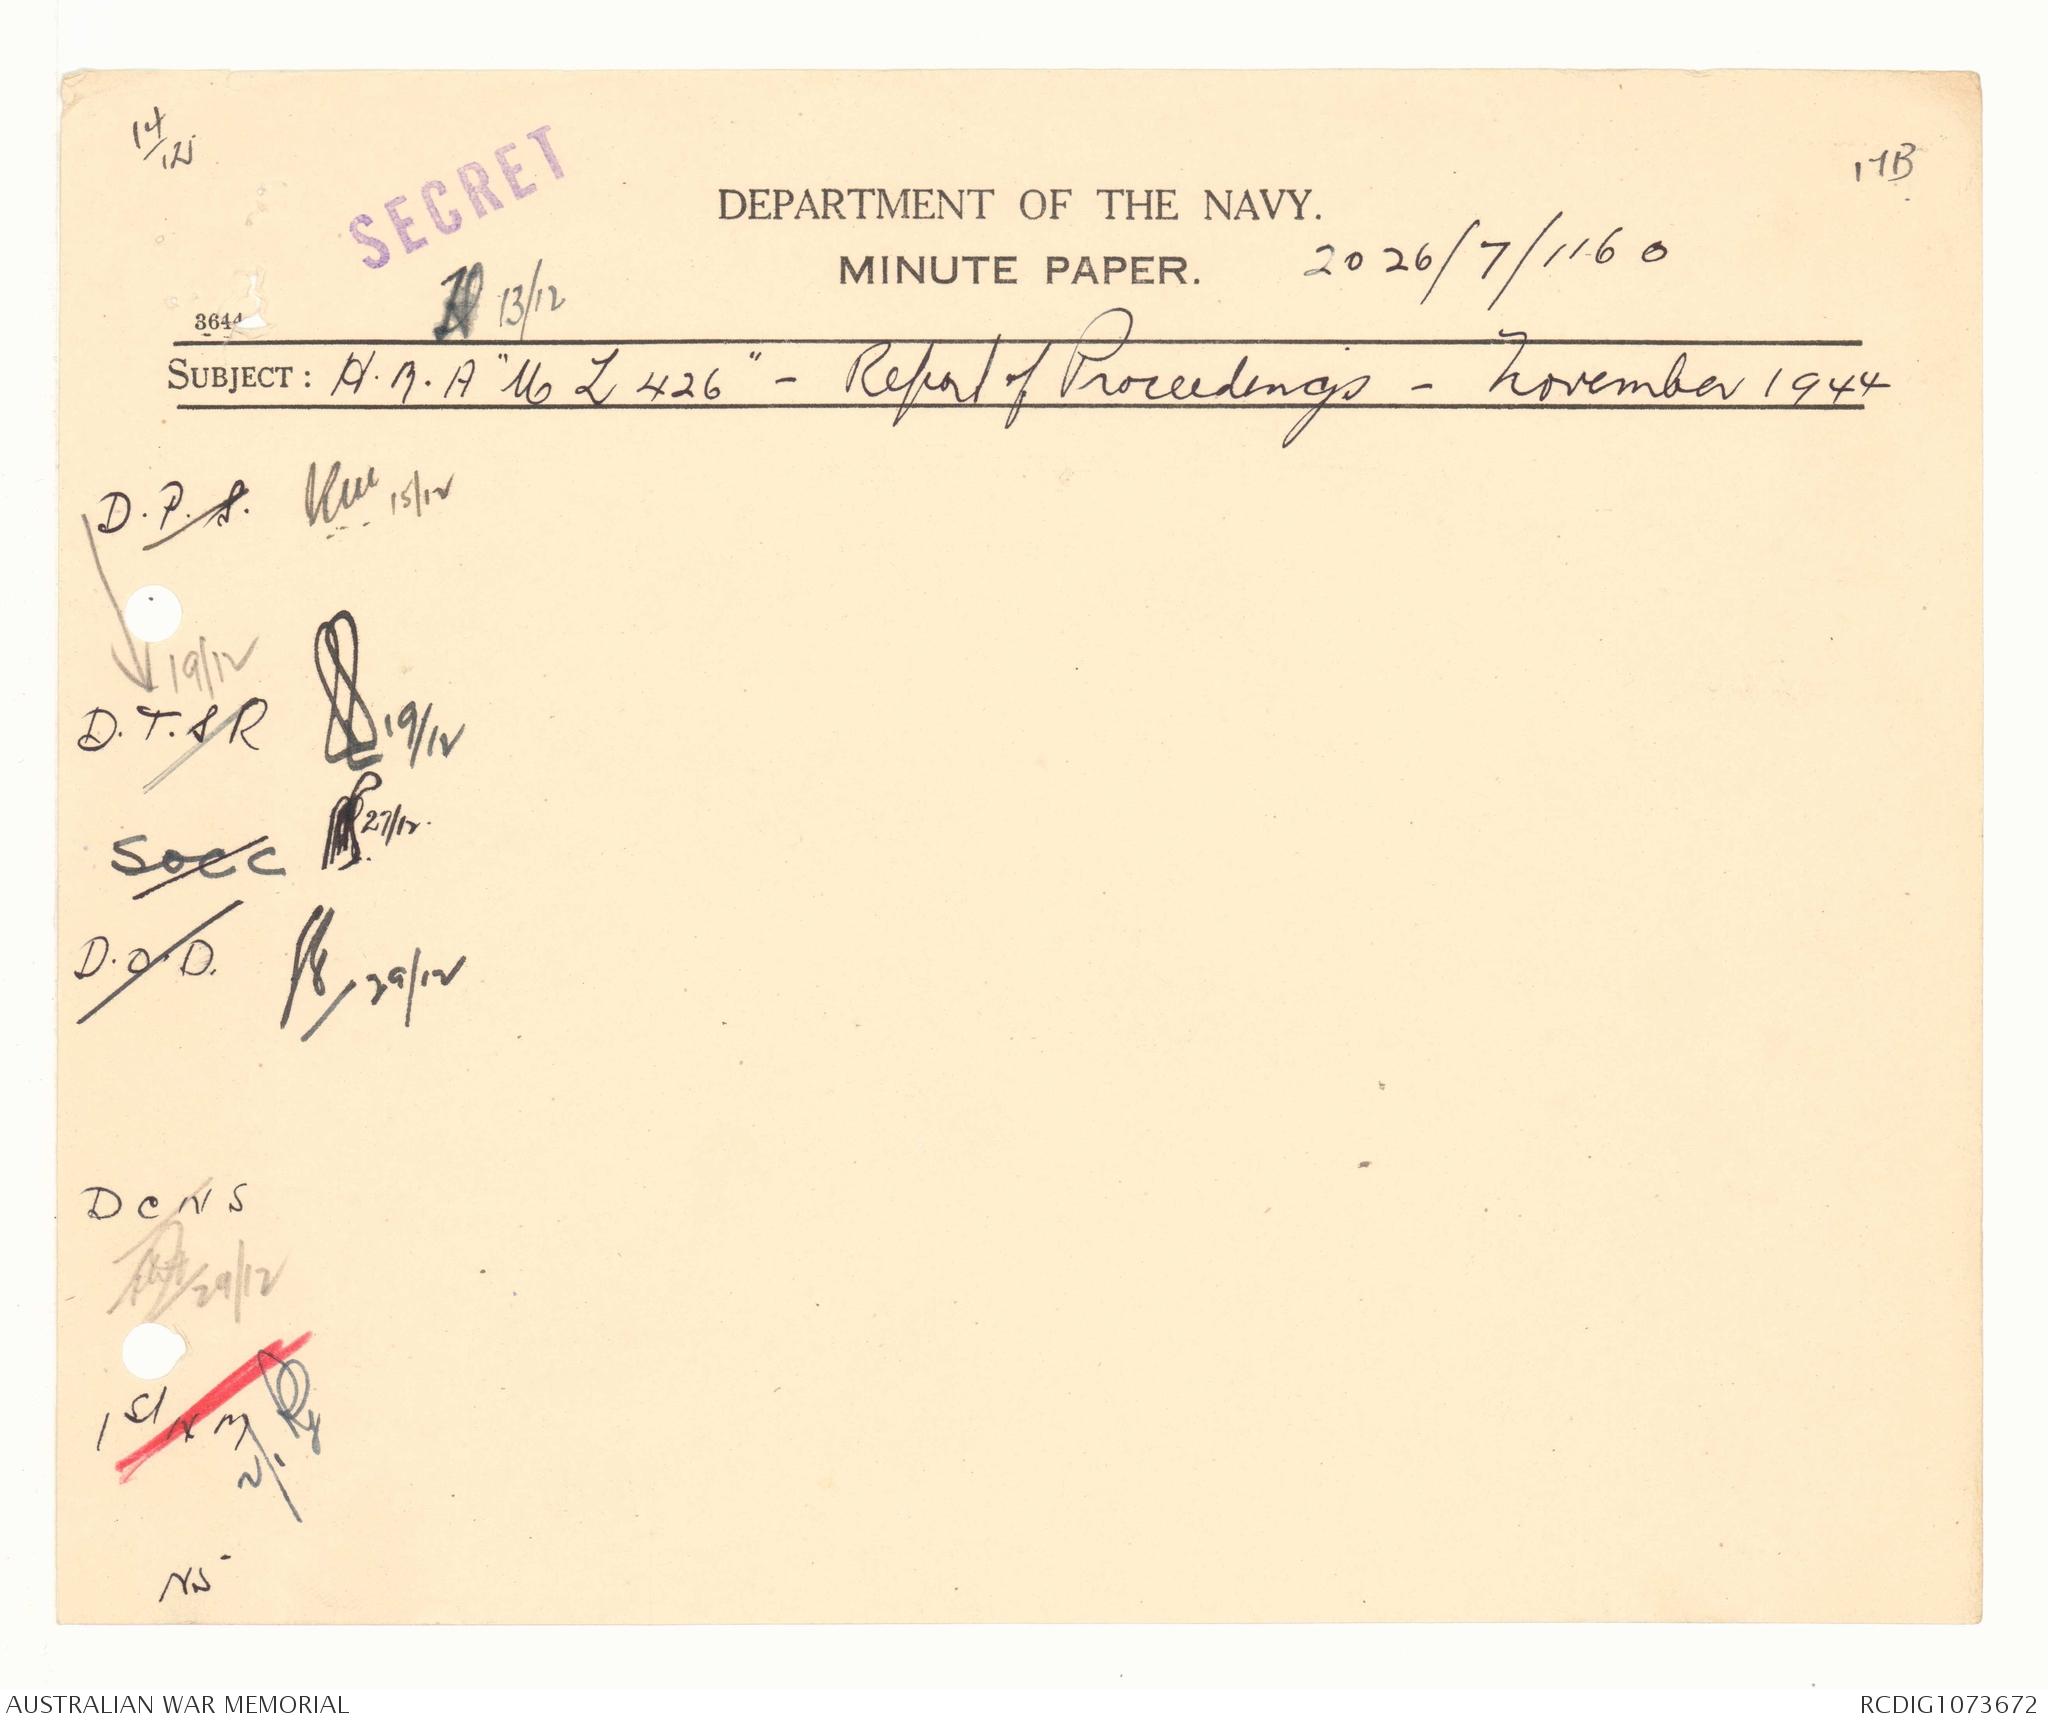 14/12
17B
SECRET
DEPARTMENT OF THE NAVY.
MINUTE PAPER.
2026/7/1160
13/12
3644
SUBJECT: H.M.A "ML 426" - Report of Proceedings - November 1944
D.P.S. 15/12
19/12
D.T.S R 19/12
SOCC 27/12.
D.O.D. 29/12
DCNS
29/12
1st NM
2/1
NS
AUSTRALIAN WAR MEMORIAL
RCDIG1073672